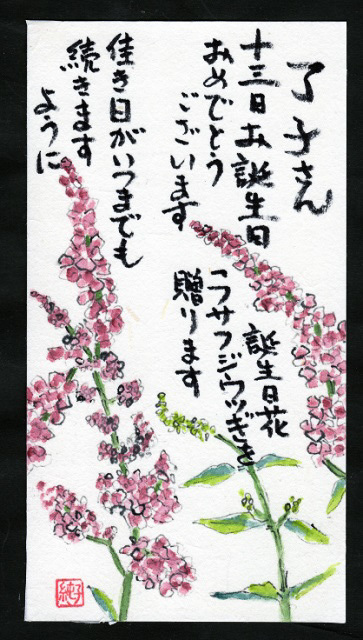 了子さん
十三日お誕生日
おめでとう
ございます
佳き日がいつまでも
続きます
ように
誕生日花
「フサフジウツギ」を
贈ります